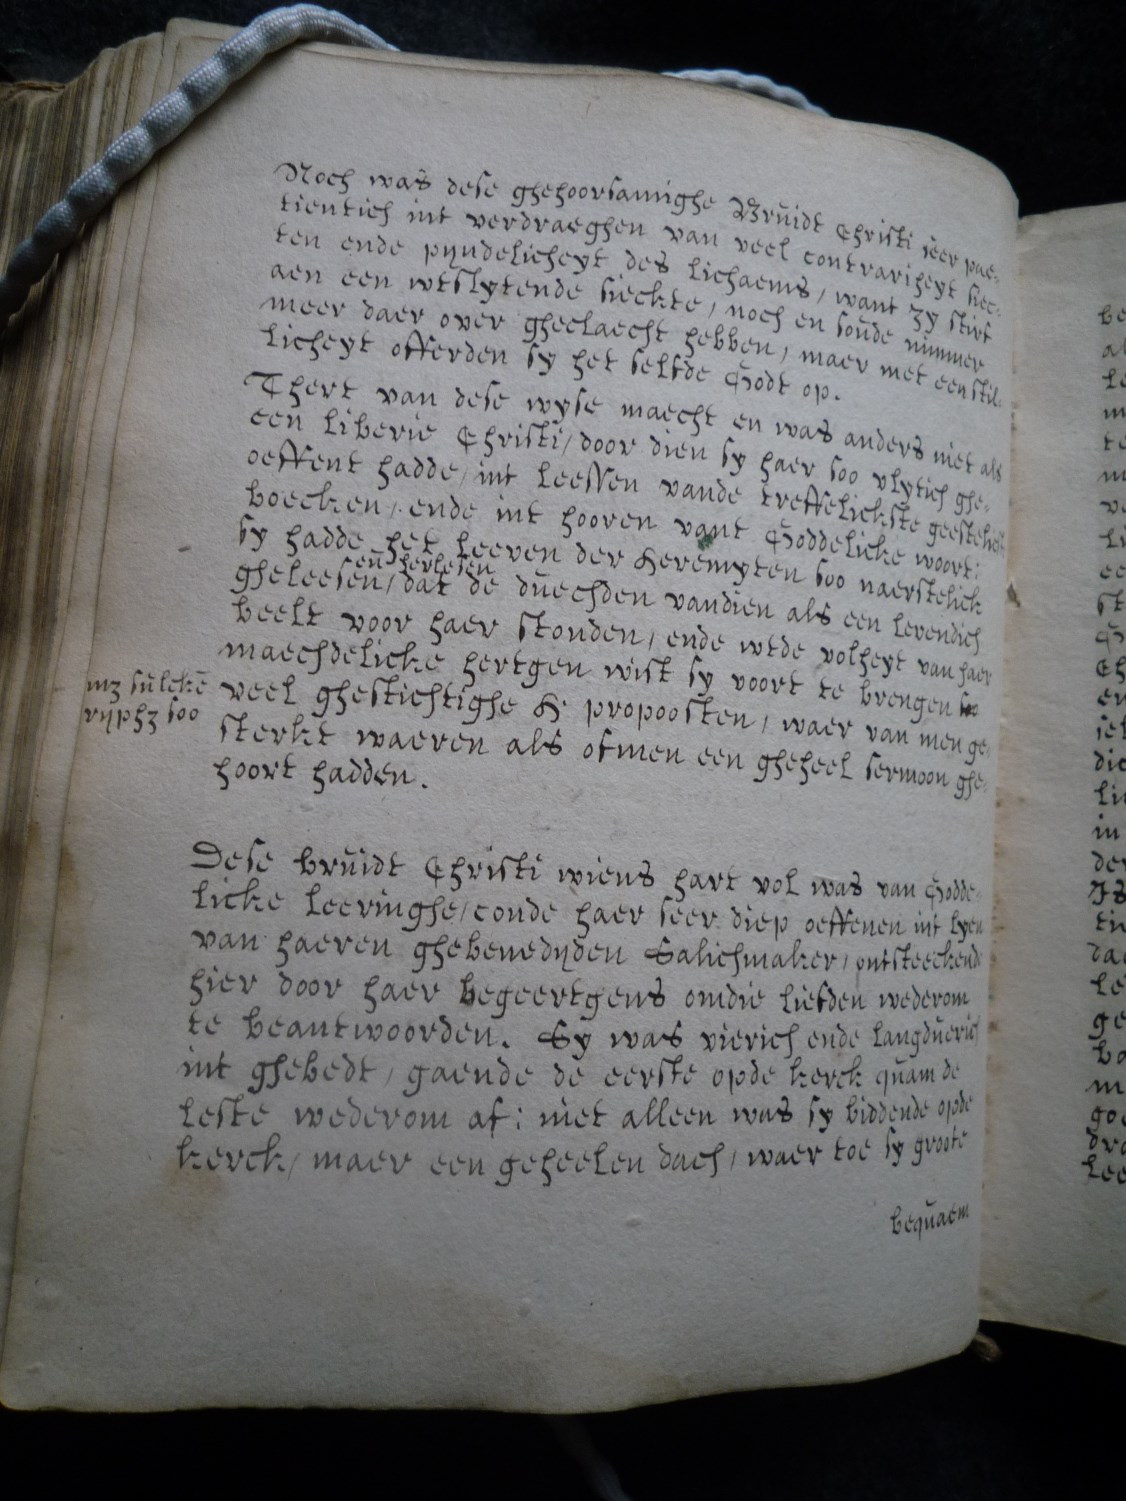 Noch was dese ghehoorsamighe Bruidt Christi seer pae-
tientich int verdraeghen van veel contrariheyt siec-
ten ende pijndelicheyt des lichaems, want zy stirf
aen een wtslytende sieckte, noch en soude nimmer
meer daer over gheclaecht hebben, maer met een stil-
licheyt offerden sy het selfde Godt op.
Thert van dese wyse maecht en was anders niet als
een liberie Christi, door dien sy haer soo vlytich ghe-
oeffent hadde, int leessen vande treffelickste geestelicke
boecken, ende int hooren vant Goddelicke woort:
sy hadde het leeven der Heremyten soo naerstelick
en herlesen
gheleesen, dat de duechden vandien als een levendich
beelt voor haer stonden, ende wtde volheyt van haer
maechdelicke hertgen wist sy voort te brengen
mz sulcke
rijphz soo
veel ghestichtighe H propoosten, waer van men ge-
sterkt waeren als ofmen een gheheel sermoon ghe-
hoort hadden.
Dese bruidt Christi wiens hart vol was van Godde-
licke leeringhe, conde haer seer diep oeffenen int lyen
van haeren ghebenedijden Salichmaker, ontsteeckende
hier door haer begeertgens omdie liefden wederom
te beantwoorden. Sy was vierich ende langduerich
int ghebedt, gaende de eerste opde kerck quam de
leste wederom af: niet alleen was sy biddende opde
kerck, maer een geheelen dach, waer toe sy groote
bequaem